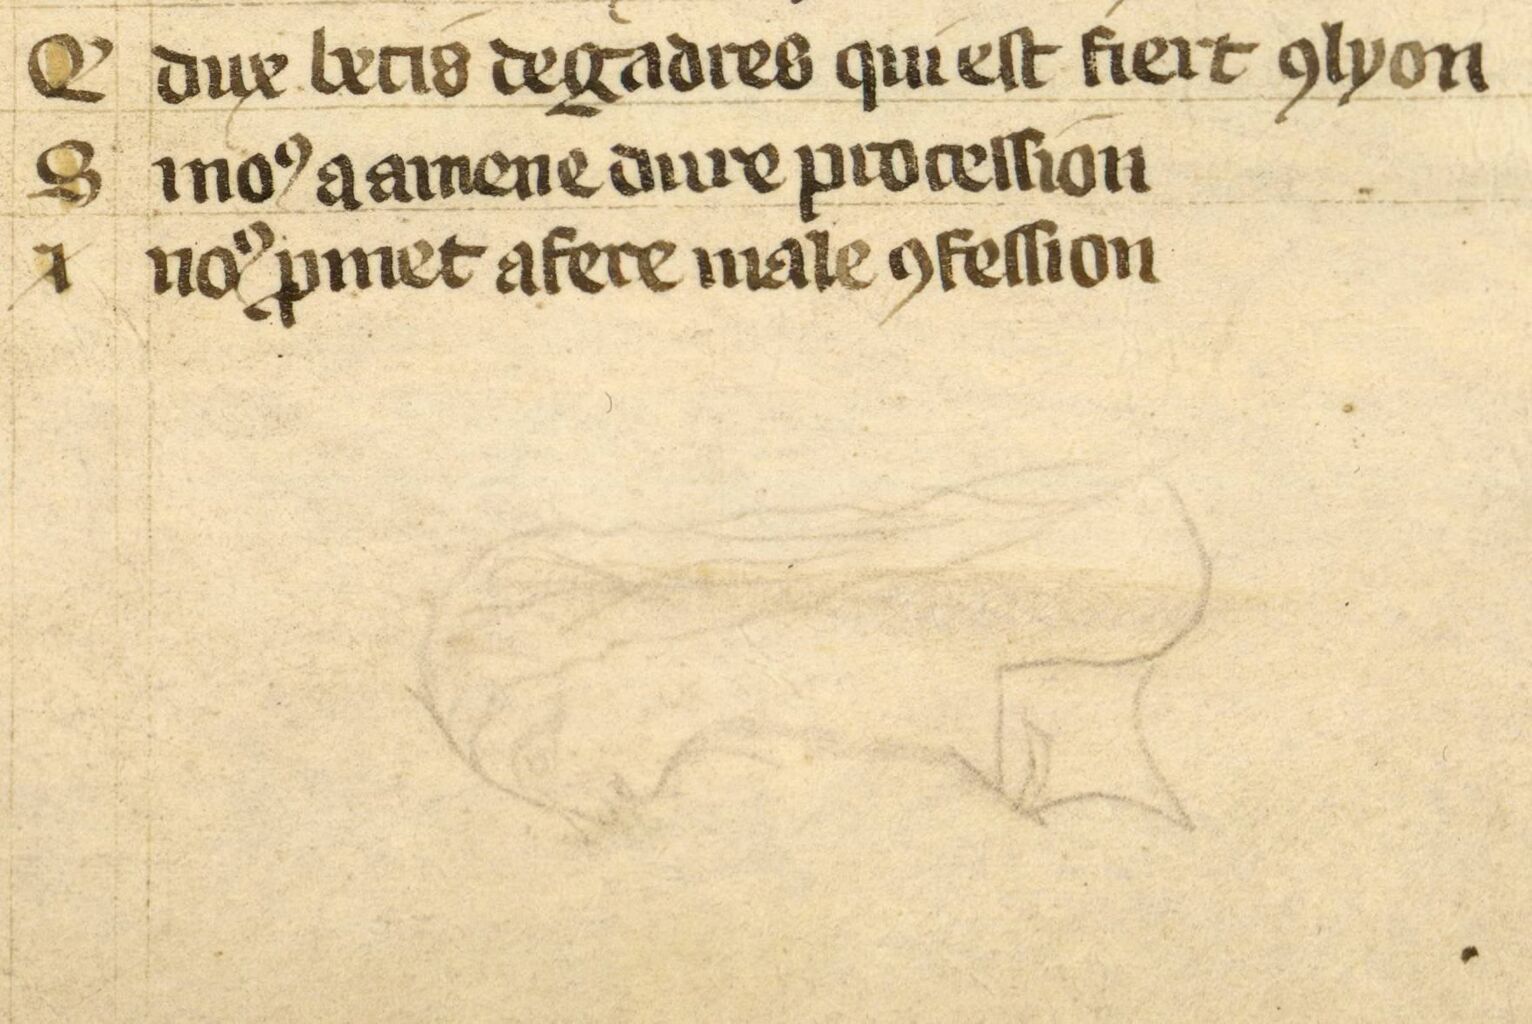 Q dux betis degadres qui est fiert ꝯlyon
S i noꝰ a amene dure procession
A noꝰ ꝓmet afere male ꝯfession